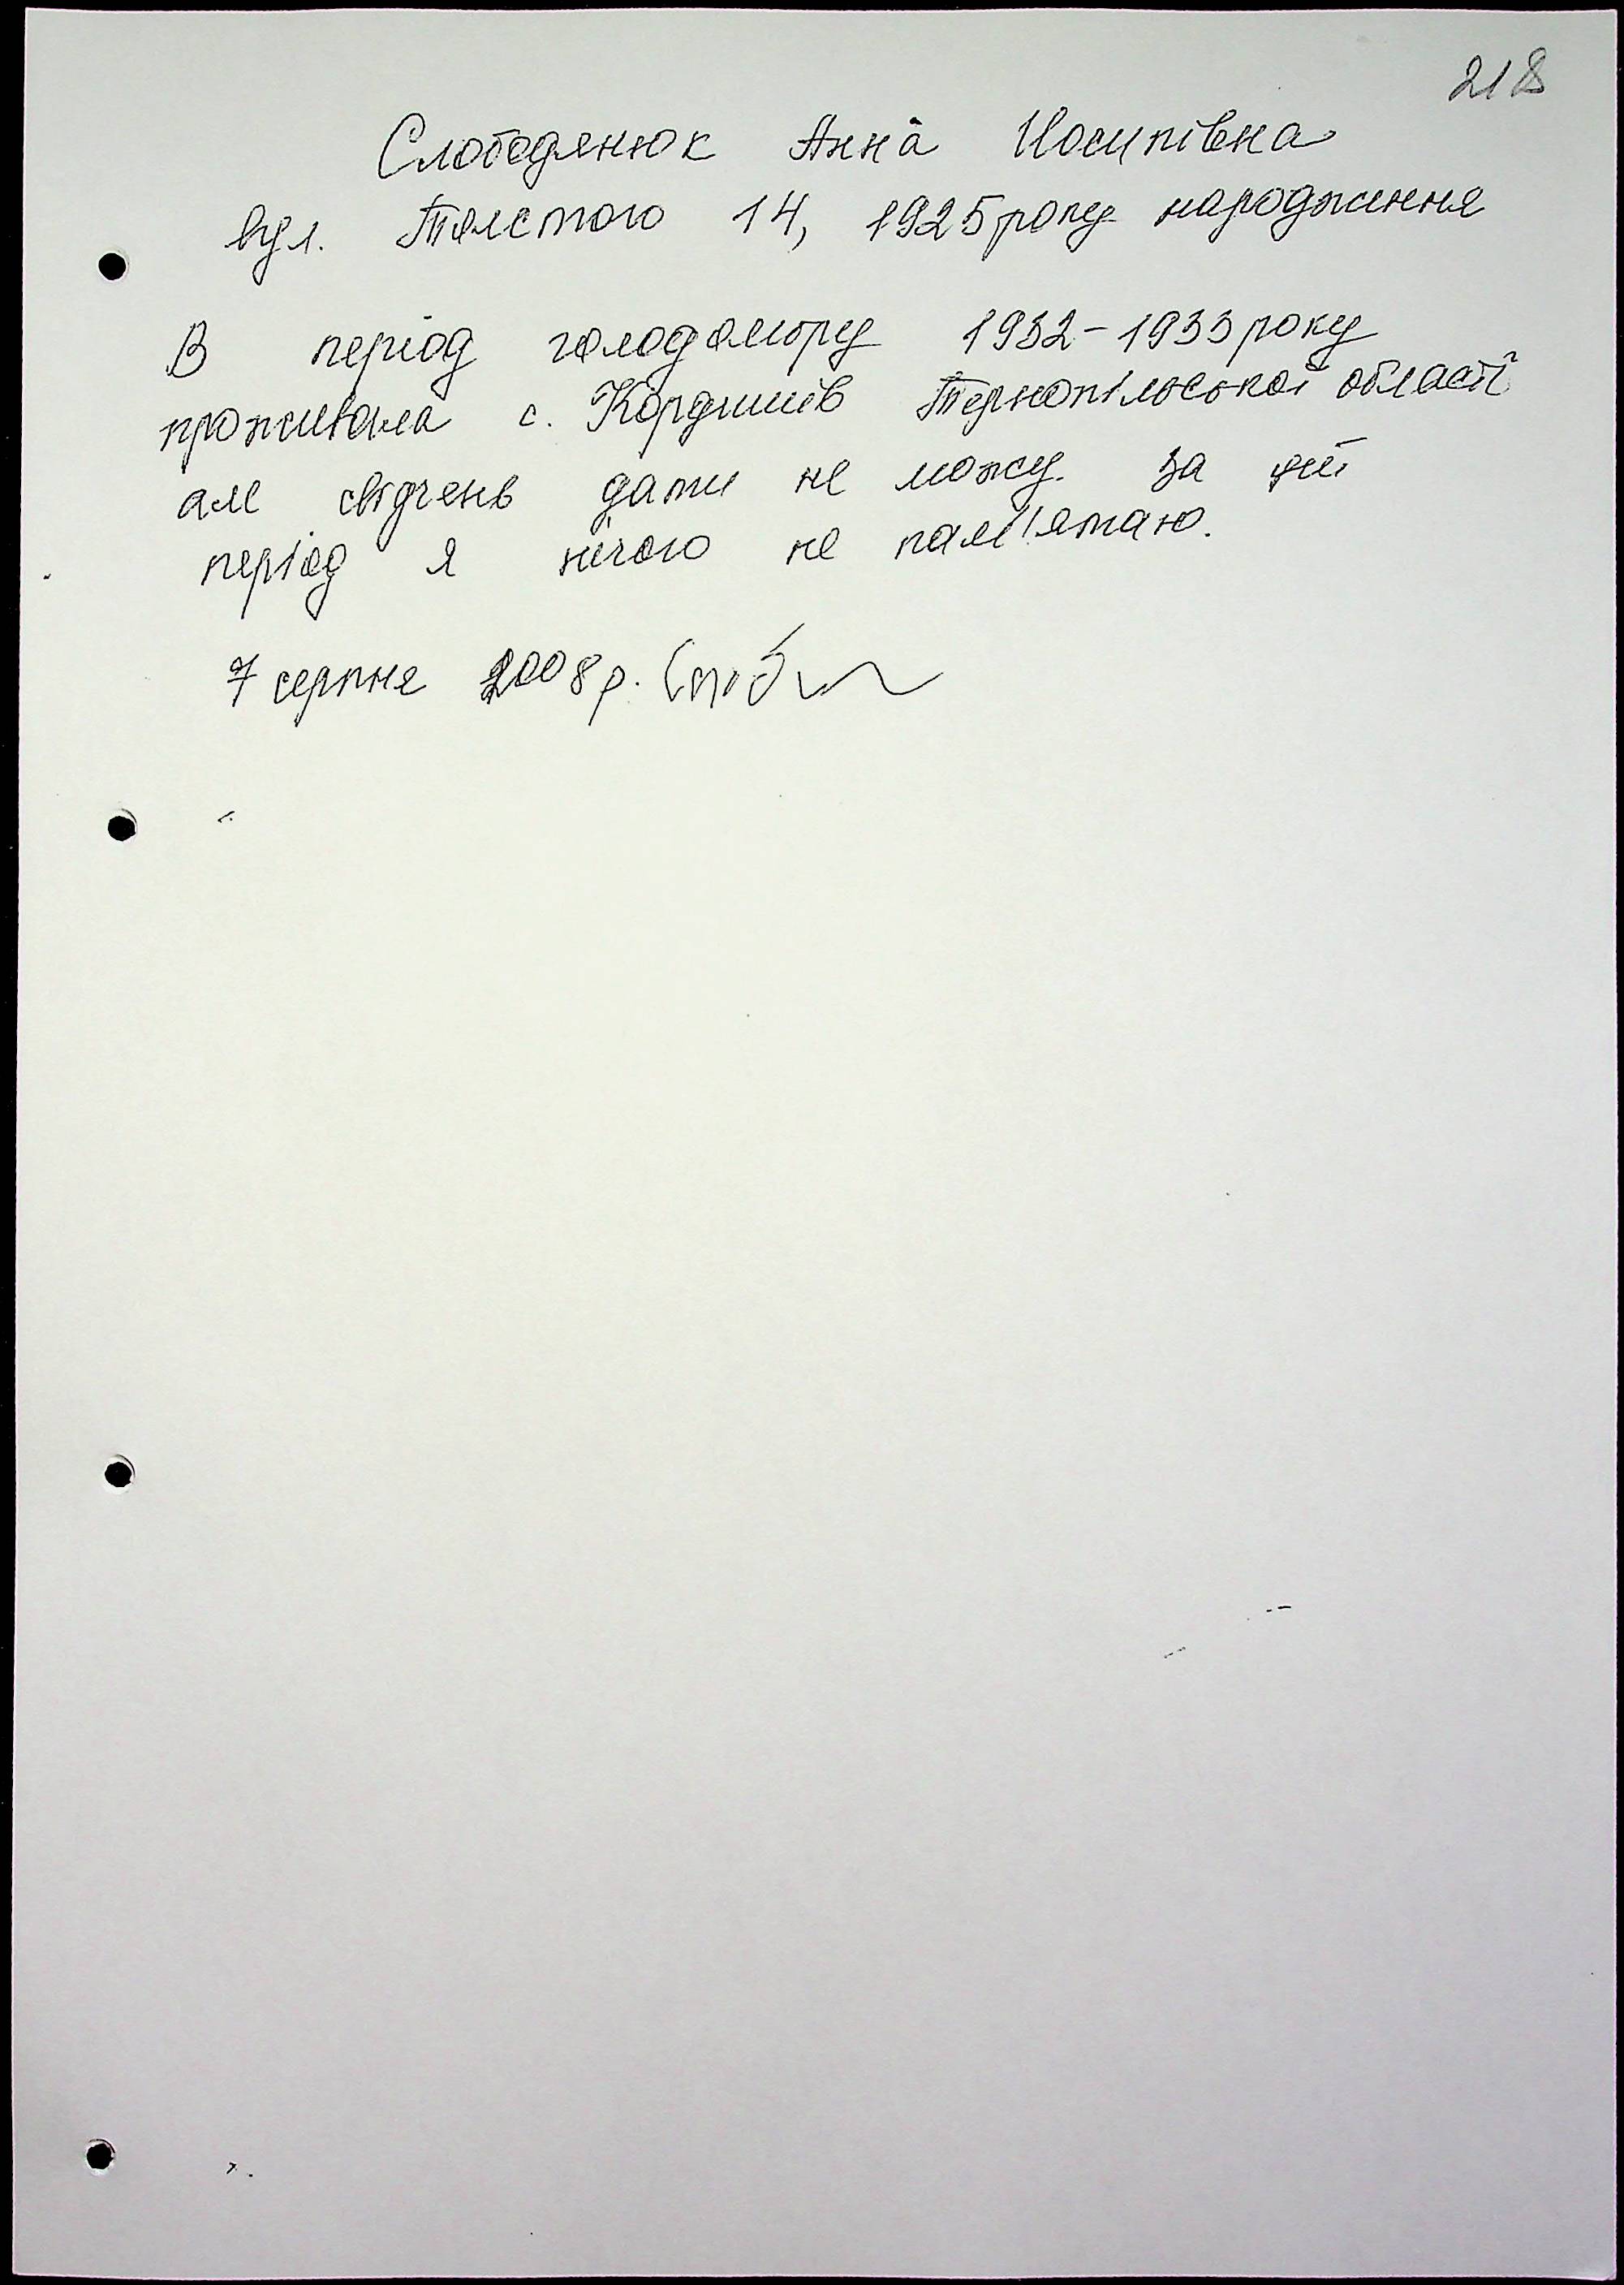 218
Слободянюк Анна Йосипівна
вул. Толстого 14, 1925 року народження
В період голодомору 1932-1933 року
проживала с. Кордишів Тернопільської області
але свідчень дати не можу. За цей
період я нічого не пам'ятаю.
7 серпня 2008 р.